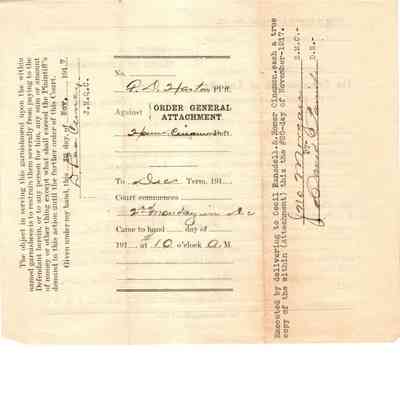 The object in serving this garnishment upon the within
named garnishees is to restrain them severally from paying to the
Defendant herein, or to any person for him, any sum or amount
of money or other thing except what shall exceed the Plaintiff's
demand in this action until the further order of this Court.
Given under my hand, this day of Nov. 1917.
J.M.C.C.
No.
Pl'ff.
Against
ORDER GENERAL
ATTACHMENT.
Def't.
To Dec Term, 191
Court commences
2nd Monday in Dec
Came to hand day of
191 at 10 o'clock A M
Executed by delivering to Cecil Ransdell & Homer Cinamon each a true
copy of the within (Attachment) this the day of November-1917.
S.M.C.
By
D.S.